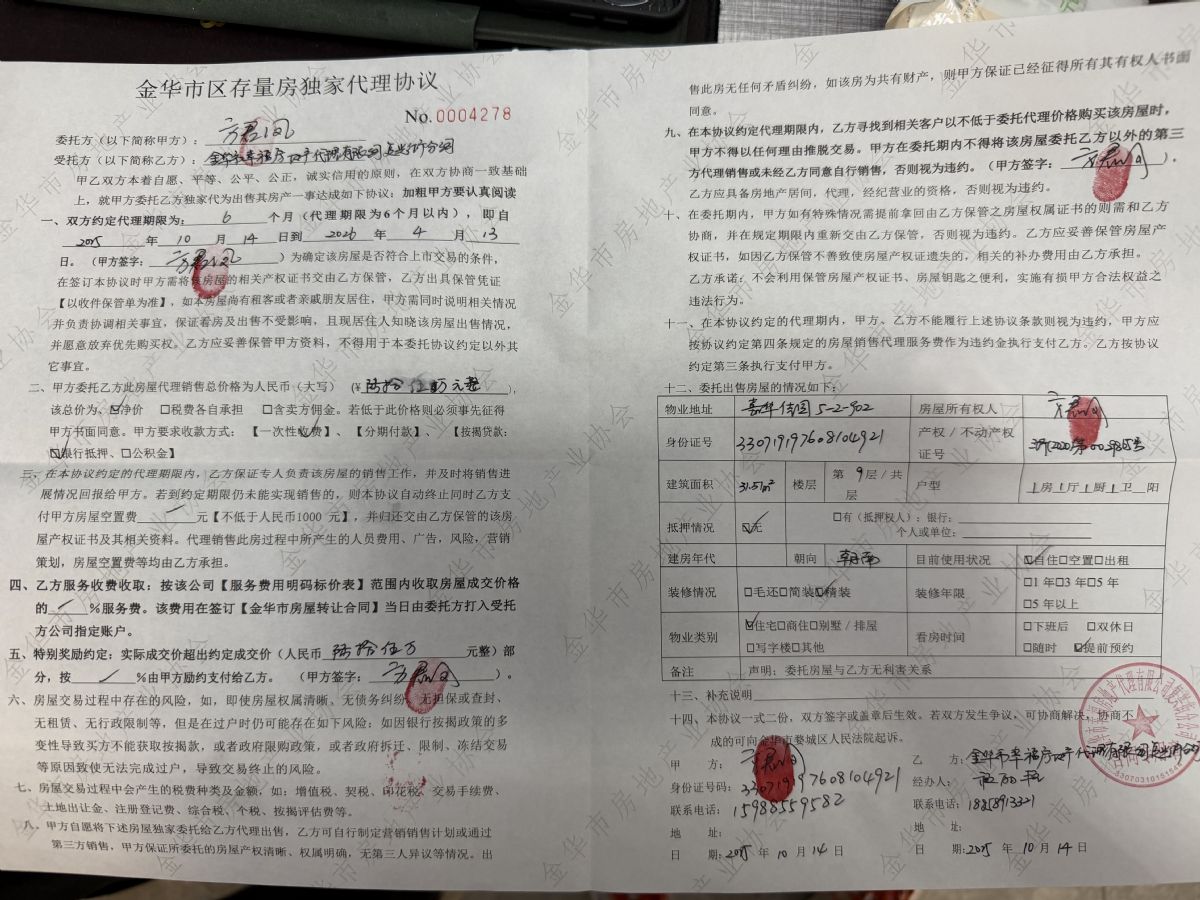 金华市区存量房独家代理协议
No.0004278
委托方（以下简称甲方）：
受托方（以下简称乙方）：金华市幸福房地产代理有限公司
甲乙双方本着自愿、平等、公平、公正，诚实信用的原则，在双方协商一致基础
上，就甲方委托乙方独家代为出售其房产一事达成如下协议：加粗甲方要认真阅读
一、双方约定代理期限为： 6 个月（代理期限为6个月以内），即自
2025 年 10 月 14 日到 2026 年 4 月 13
日。（甲方签字： ）为确定该房屋是否符合上市交易的条件，
在签订本协议时甲方需将该房屋的相关产权证书交由乙方保管，乙方出具保管凭证
【以收件保管单为准】，如本房屋尚有租客或者亲戚朋友居住，甲方需同时说明相关情况
并负责协调相关事宜，保证看房及出售不受影响，且现居住人知晓该房屋出售情况，
并愿意放弃优先购买权。乙方应妥善保管甲方资料，不得用于本委托协议约定以外其
它事宜。
二、甲方委托乙方此房屋代理销售总价格为人民币（大写）（¥ 陆拾伍万元整），
该总价为、☑净价 □税费各自承担 □含卖方佣金。若低于此价格则必须事先征得
甲方书面同意。甲方要求收款方式：【一次性收费】、【分期付款】、【按揭贷款：
☑银行抵押、□公积金】
三、在本协议约定的代理期限内，乙方保证专人负责该房屋的销售工作，并及时将销售进
展情况回报给甲方。若到约定期限仍未能实现销售的，则本协议自动终止同时乙方支
付甲方房屋空置费 — 元【不低于人民币1000 元】，并归还交由乙方保管的该房
屋产权证书及其相关资料。代理销售此房过程中所产生的人员费用、广告，风险，营销
策划，房屋空置费等均由乙方承担。
四、乙方服务收费收取：按该公司【服务费用明码标价表】范围内收取房屋成交价格
的 %服务费。该费用在签订【金华市房屋转让合同】当日由委托方打入受托
方公司指定账户。
五、特别奖励约定：实际成交价超出约定成交价（人民币 陆拾伍万 元整）部
分，按 %由甲方励约支付给乙方。 （甲方签字： ）。
六、房屋交易过程中存在的风险，如，即使房屋权属清晰、无债务纠纷，无担保或查封、
无租赁、无行政限制等，但是在过户时仍可能存在如下风险：如因银行按揭政策的多
变性导致买方不能获取按揭款，或者政府限购政策，或者政府拆迁、限制、冻结交易
等原因致使无法完成过户，导致交易终止的风险。
七、房屋交易过程中会产生的税费种类及金额，如：增值税、契税、印花税、交易手续费、
土地出让金、注册登记费、综合税、个税、按揭评估费等。
八、甲方自愿将下述房屋独家委托给乙方代理出售，乙方可自行制定营销销售计划或通过
第三方销售，甲方保证所委托的房屋产权清晰、权属明确，无第三人异议等情况。出
售此房无任何矛盾纠纷，如该房为共有财产，则甲方保证已经征得所有其有权人书面
同意。
九、在本协议约定代理期限内，乙方寻找到相关客户以不低于委托代理价格购买该房屋时，
甲方不得以任何理由推脱交易。甲方在委托期内不得将该房屋委托乙方以外的第三
方代理销售或未经乙方同意自行销售，否则视为违约。（甲方签字： ）。
乙方应具备房地产居间，代理，经纪营业的资格，否则视为违约。
十、在委托期内，甲方如有特殊情况需提前拿回由乙方保管之房屋权属证书的则需和乙方
协商，并在规定期限内重新交由乙方保管，否则视为违约。乙方应妥善保管房屋产
权证书，如因乙方保管不善致使房屋产权证遗失的，相关的补办费用由乙方承担。
乙方承诺：不会利用保管房屋产权证书、房屋钥匙之便利，实施有损甲方合法权益之
违法行为。
十一、在本协议约定的代理期内，甲方、乙方不能履行上述协议条款则视为违约，甲方应
按协议约定第四条规定的房屋销售代理服务费作为违约金执行支付乙方。乙方按协议
约定第三条执行支付甲方。
十二、委托出售房屋的情况如下：
物业地址 嘉华佳园 5-2-902 房屋所有权人
身份证号 330719197608104921 产权 / 不动产权证号
建筑面积 31.51m² 楼层 第 9 层 / 共 层 户型 1 房 1 厅 1 厨 1 卫 阳
抵押情况 ☑无 □有（抵押权人）：银行：
个人或单位：
建房年代 朝向 朝南 目前使用状况 ☑自住□空置□出租
装修情况 □毛还□简装☑精装 装修年限 □1 年□3 年□5 年
□5 年以上
物业类别 ☑住宅□商住□别墅 / 排屋
□写字楼□其他 看房时间 □下班后 □双休日
□随时 ☑提前预约
备注 声明：委托房屋与乙方无利害关系
十三、补充说明
十四、本协议一式二份，双方签字或盖章后生效。若双方发生争议，可协商解决，协商不
成的可向金华市婺城区人民法院起诉。
甲 方：
乙 方：金华市幸福房地产代理有限公司
身份证号码：330719197608104921
经办人：
联系电话：15988559582
联系电话：
地 址：
地 址：
日 期：2025 年 10 月 14 日
日 期：2025 年 10 月 14 日